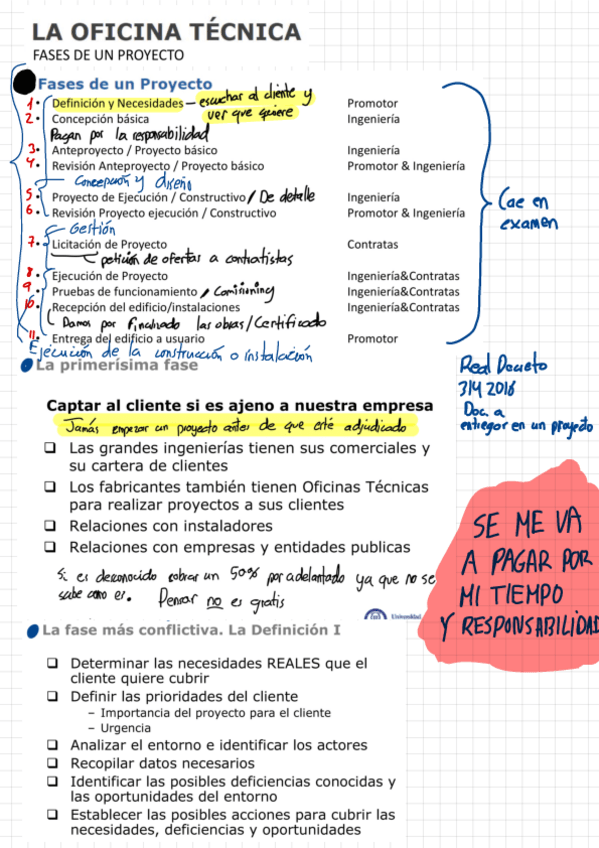 LA OFICINA TÉCNICA
FASES DE UN PROYECTO
Fases de un Proyecto
1. Definición y Necesidades – escuchar al cliente y Promotor
ver que quiere
2. Concepción básica Ingeniería
Pagan por la responsabilidad
3. Anteproyecto / Proyecto básico Ingeniería
4. Revisión Anteproyecto / Proyecto básico Promotor & Ingeniería
Concepción y diseño
5. Proyecto de Ejecución / Constructivo / De detalle Ingeniería
6. Revisión Proyecto ejecución / Constructivo Promotor & Ingeniería
Gestión
7. Licitación de Proyecto Contratas
petición de ofertas a contratistas
8. Ejecución de Proyecto Ingeniería&Contratas
9. Pruebas de funcionamiento / Comisioning Ingeniería&Contratas
10. Recepción del edificio/instalaciones Ingeniería&Contratas
Damos por finalizado las obras/Certificado
11. Entrega del edificio a usuario Promotor
Ejecución de la construcción o instalación
Cae en
examen
La primerísima fase
Real Decreto
314 2016
Doc. a
entregar en un proyecto
Captar al cliente si es ajeno a nuestra empresa
Jamás empezar un proyecto antes de que esté adjudicado
❑ Las grandes ingenierías tienen sus comerciales y
su cartera de clientes
❑ Los fabricantes también tienen Oficinas Técnicas
para realizar proyectos a sus clientes
❑ Relaciones con instaladores
❑ Relaciones con empresas y entidades publicas
Si es desconocido cobrar un 50% por adelantado ya que no se
sabe como es. Pensar no es gratis
SE ME VA
A PAGAR POR
MI TIEMPO
Y RESPONSABILIDAD
Universidad
La fase más conflictiva. La Definición I
❑ Determinar las necesidades REALES que el
cliente quiere cubrir
❑ Definir las prioridades del cliente
– Importancia del proyecto para el cliente
– Urgencia
❑ Analizar el entorno e identificar los actores
❑ Recopilar datos necesarios
❑ Identificar las posibles deficiencias conocidas y
las oportunidades del entorno
❑ Establecer las posibles acciones para cubrir las
necesidades, deficiencias y oportunidades